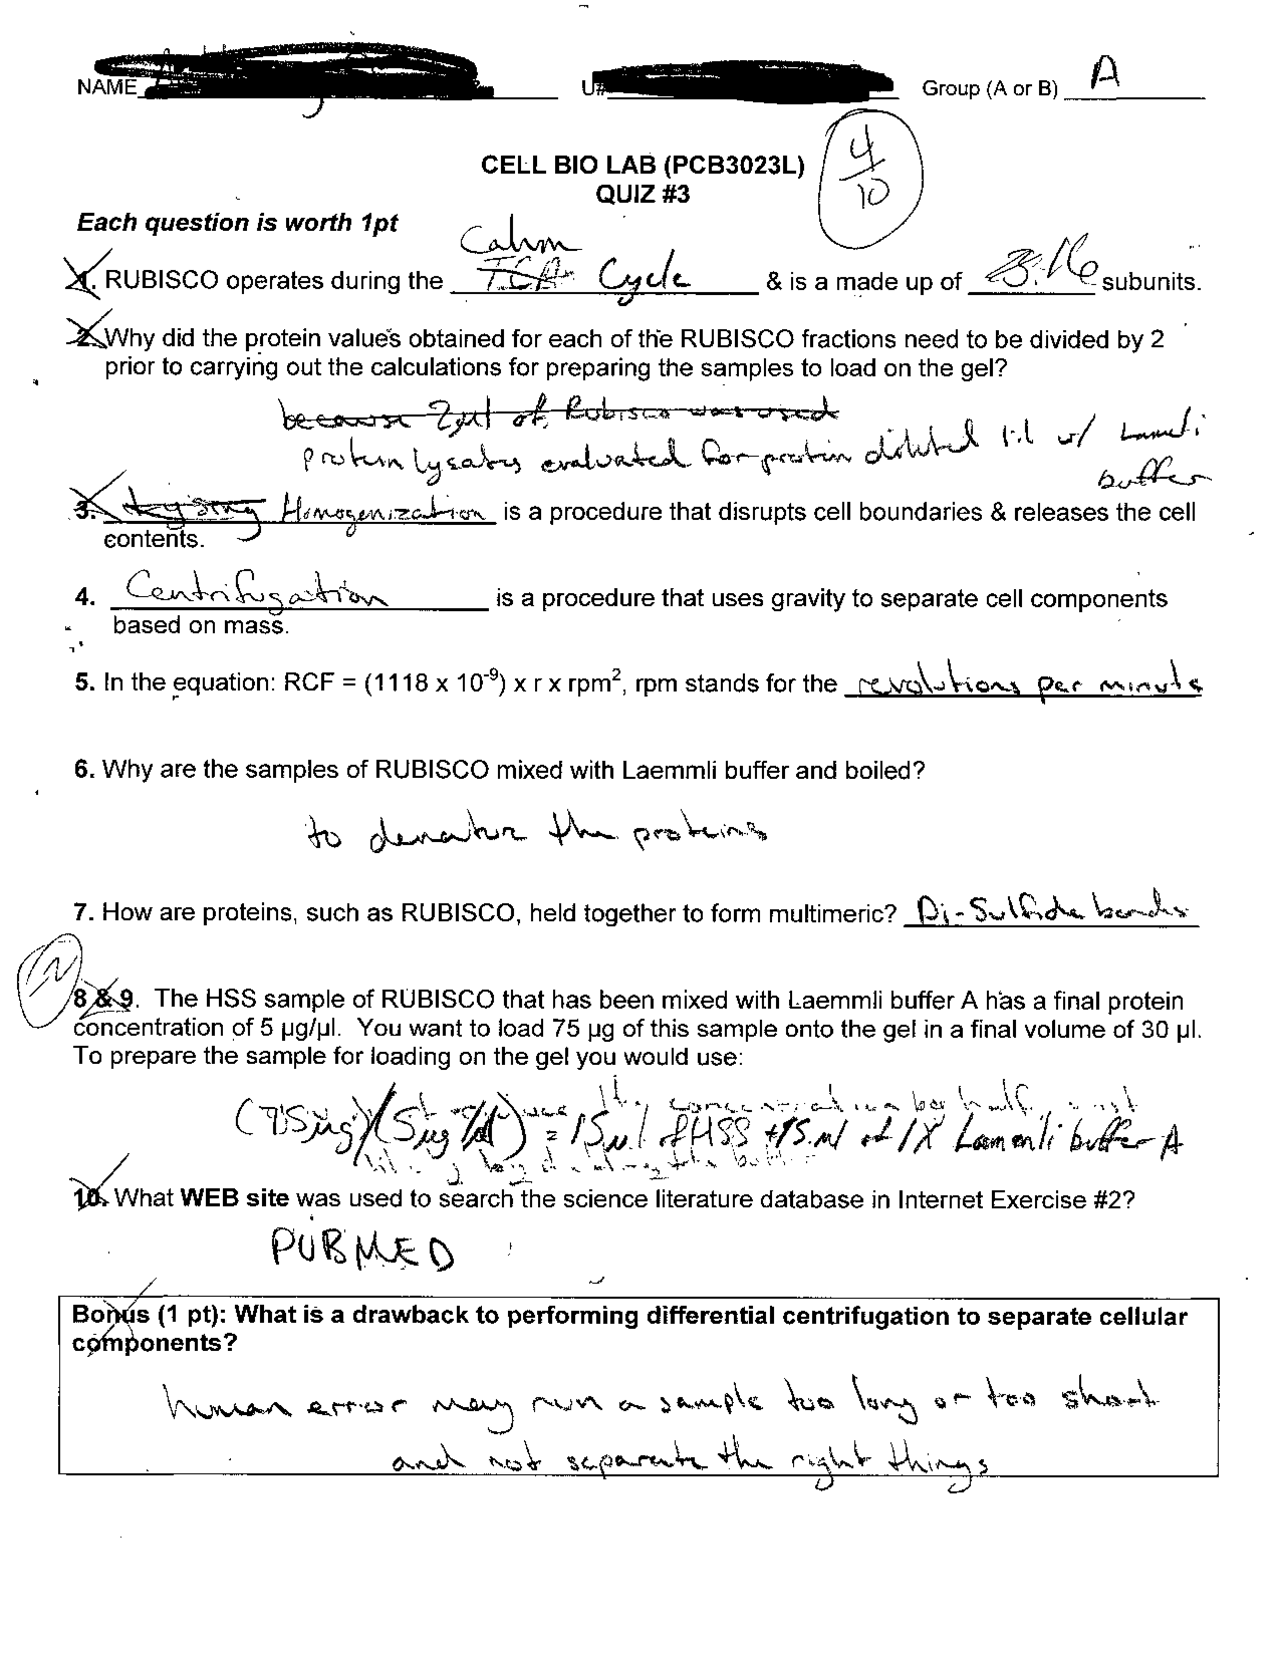 NAME U# Group (A or B) A
4/10
CELL BIO LAB (PCB3023L)
QUIZ #3
Each question is worth 1pt
Calvin
1. RUBISCO operates during the TCA Cycle & is a made up of 16 subunits.
2. Why did the protein values obtained for each of the RUBISCO fractions need to be divided by 2
prior to carrying out the calculations for preparing the samples to load on the gel?
because 2µl of Rubisco was used
protein lysates evaluated for protein diluted 1:1 w/ Lameli
buffer
3. Lysing Homogenization is a procedure that disrupts cell boundaries & releases the cell
contents.
4. Centrifugation is a procedure that uses gravity to separate cell components
based on mass.
5. In the equation: RCF = (1118 x 10⁻⁹) x r x rpm², rpm stands for the revolutions per minute
6. Why are the samples of RUBISCO mixed with Laemmli buffer and boiled?
to denatur the proteins
7. How are proteins, such as RUBISCO, held together to form multimeric? Di-Sulfide bonds
8 & 9. The HSS sample of RUBISCO that has been mixed with Laemmli buffer A has a final protein
concentration of 5 µg/µl. You want to load 75 µg of this sample onto the gel in a final volume of 30 µl.
To prepare the sample for loading on the gel you would use:
(75µg)/(5µg/µl) = 15µl of HSS + 15µl of 1X Lamenli buffer A
10. What WEB site was used to search the science literature database in Internet Exercise #2?
PUBMED
Bonus (1 pt): What is a drawback to performing differential centrifugation to separate cellular
components?
human error may run a sample too long or too short
and not separate the right things